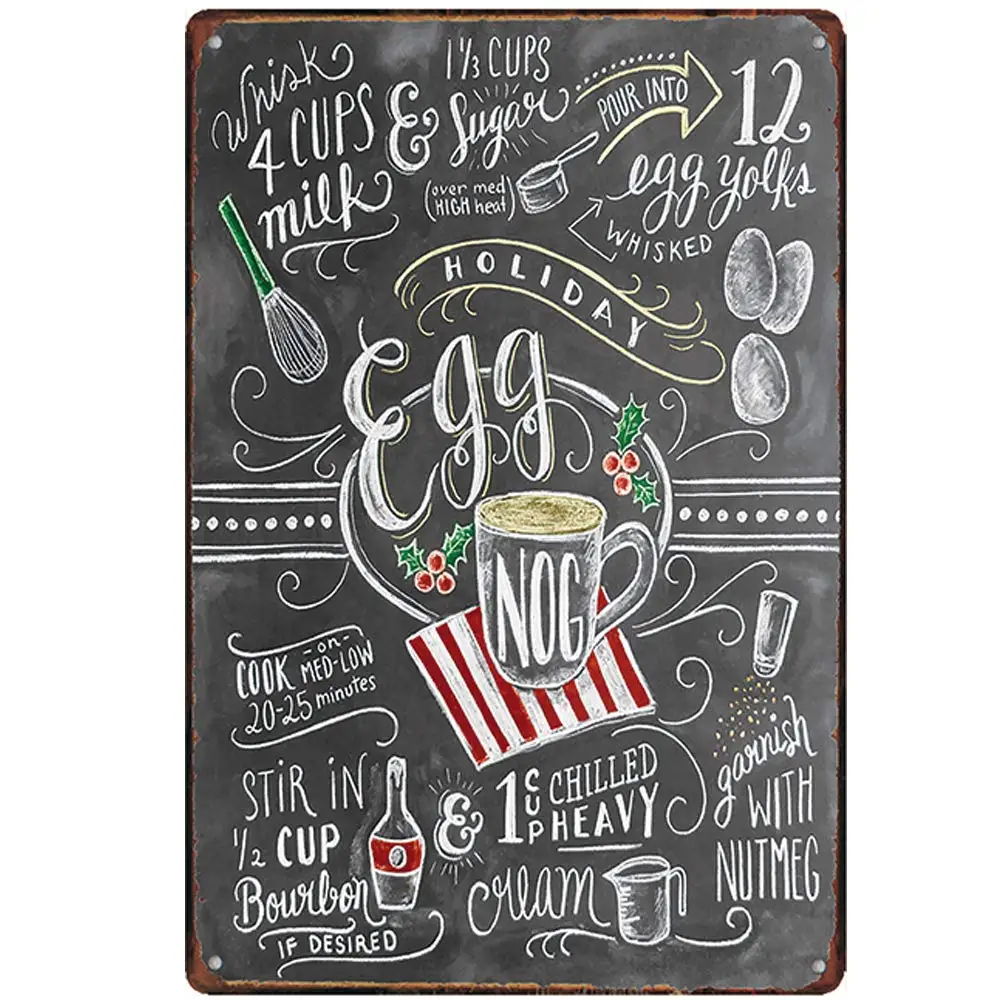 Whisk
4 CUPS
milk
&
1 1/3 CUPS
Sugar
(over med
HIGH heat)
POUR INTO
12
egg yolks
WHISKED
HOLIDAY
Egg
NOG
COOK -on- MED-LOW
20-25 minutes
STIR IN
1/2 CUP
Bourbon
IF DESIRED
&
1 CUP CHILLED
HEAVY
cream
garnish
WITH
NUTMEG